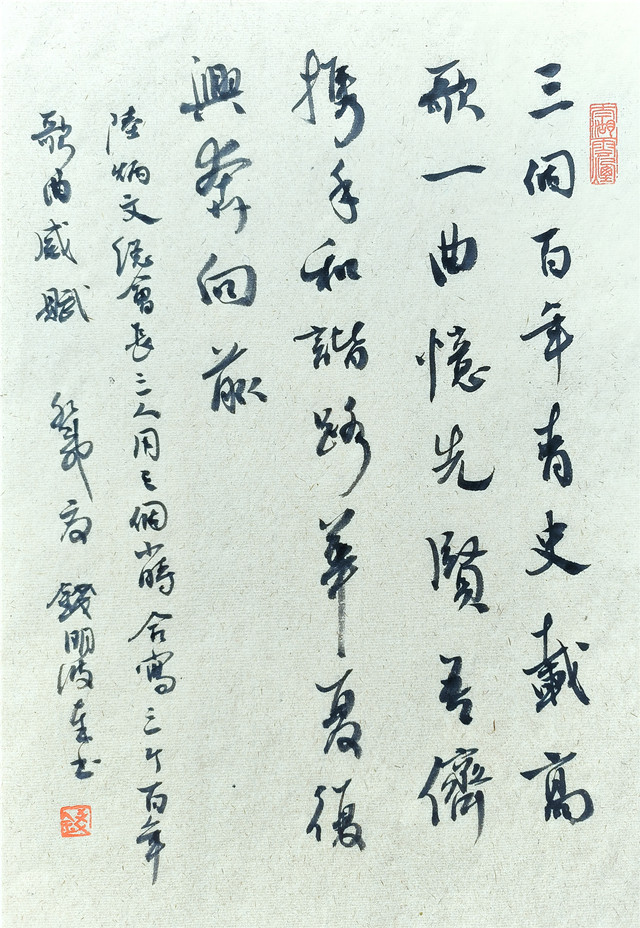 三個百年青史載高
歌一曲憶先賢吾儕
携手和諧路華夏復
興奔向前
陸炳文總會長三人用三個小時合寫三个百年
歌曲感賦
癸卯夏錢明波奉书